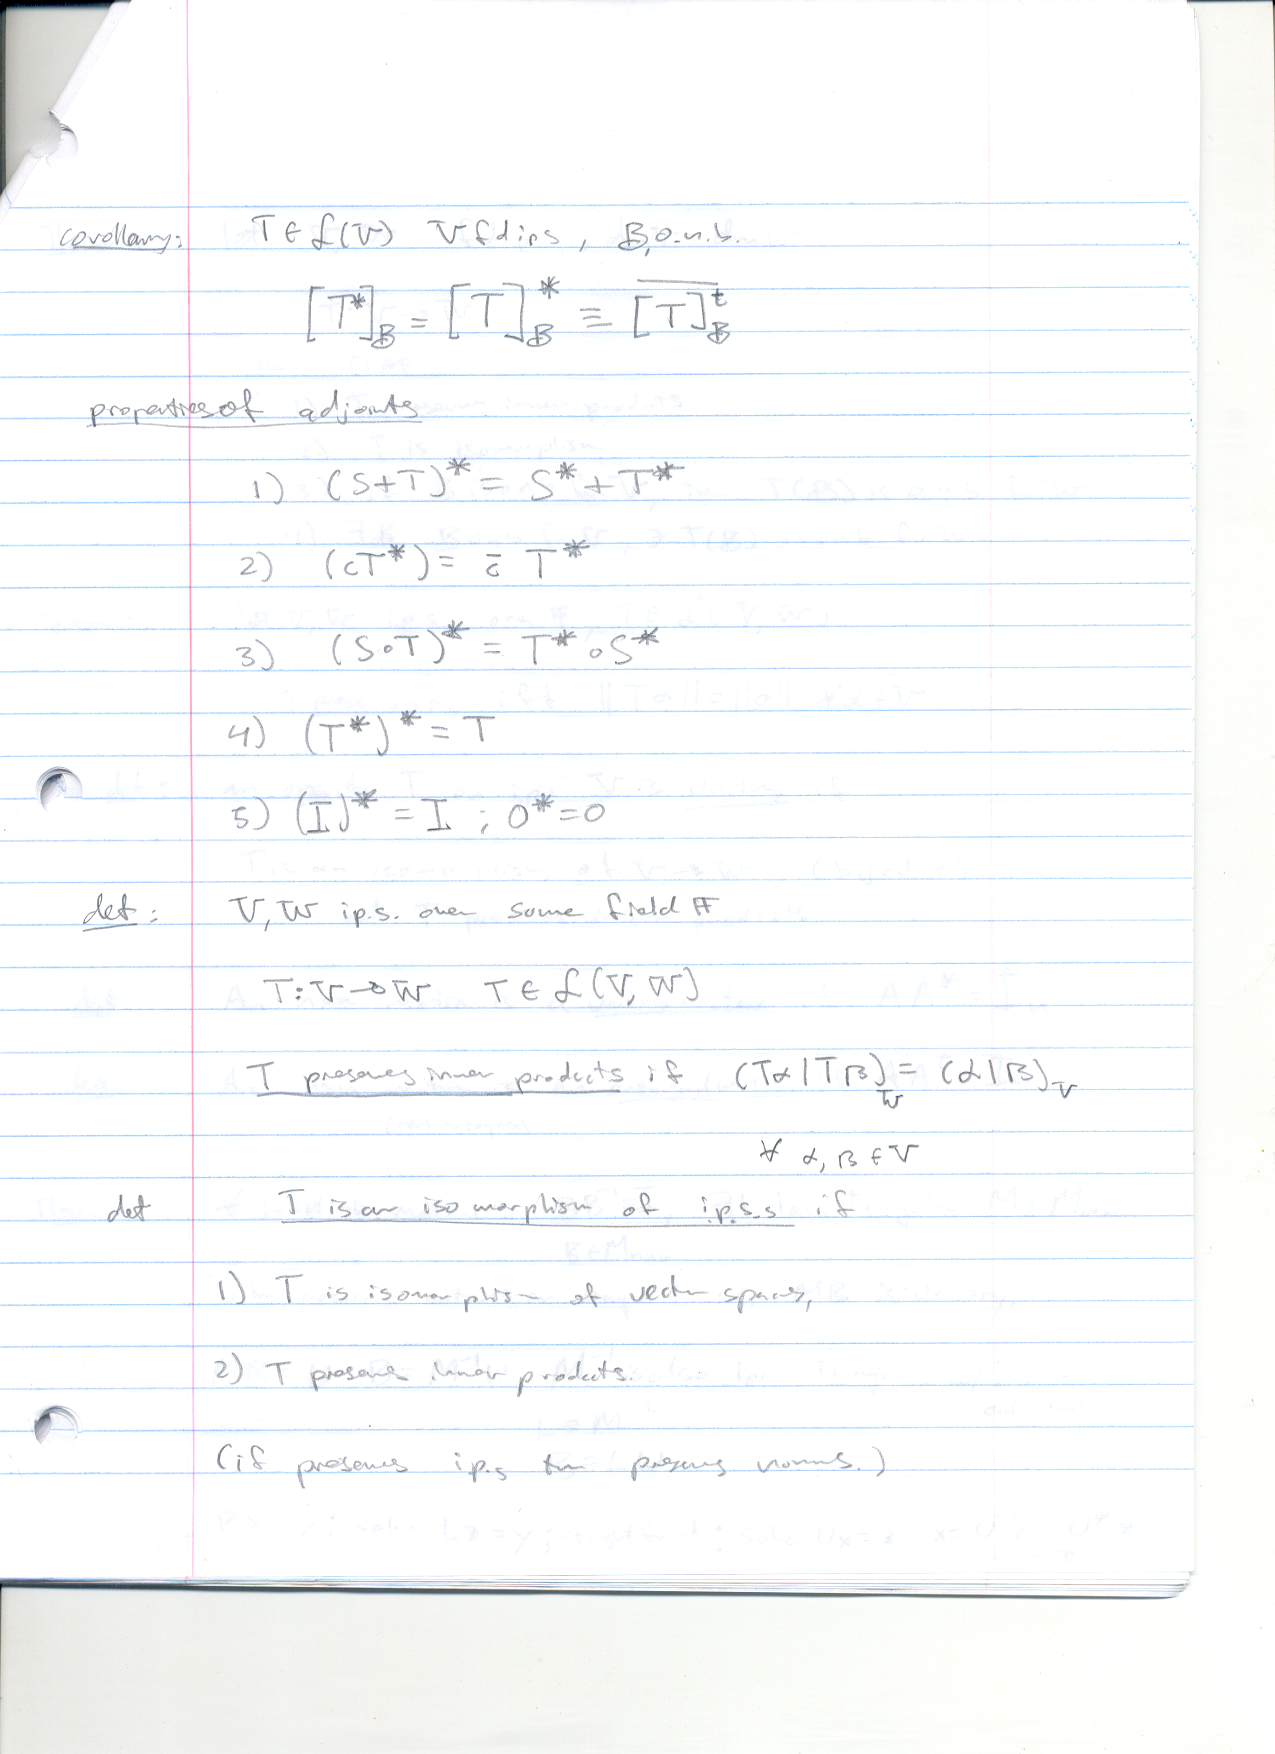 corollary: T ∈ L(V) V fdips, B, o.n.b.
[T*]_B = [T]_B^* ≡ \overline{[T]}_B^t
properties of adjoints
1) (S+T)* = S* + T*
2) (cT*) = c̄ T*
3) (S∘T)* = T* ∘ S*
4) (T*)* = T
5) (I)* = I ; 0* = 0
def: V, W ip.s. over some field F
T: V → W T ∈ L(V, W)
T preserves inner products if (Tα|Tβ)_W = (α|β)_V
∀ α, β ∈ V
def T is an isomorphism of i.p.s.s if
1) T is isomorphism of vector spaces,
2) T preserves inner products.
(if preserves ip.s then preserves norms.)